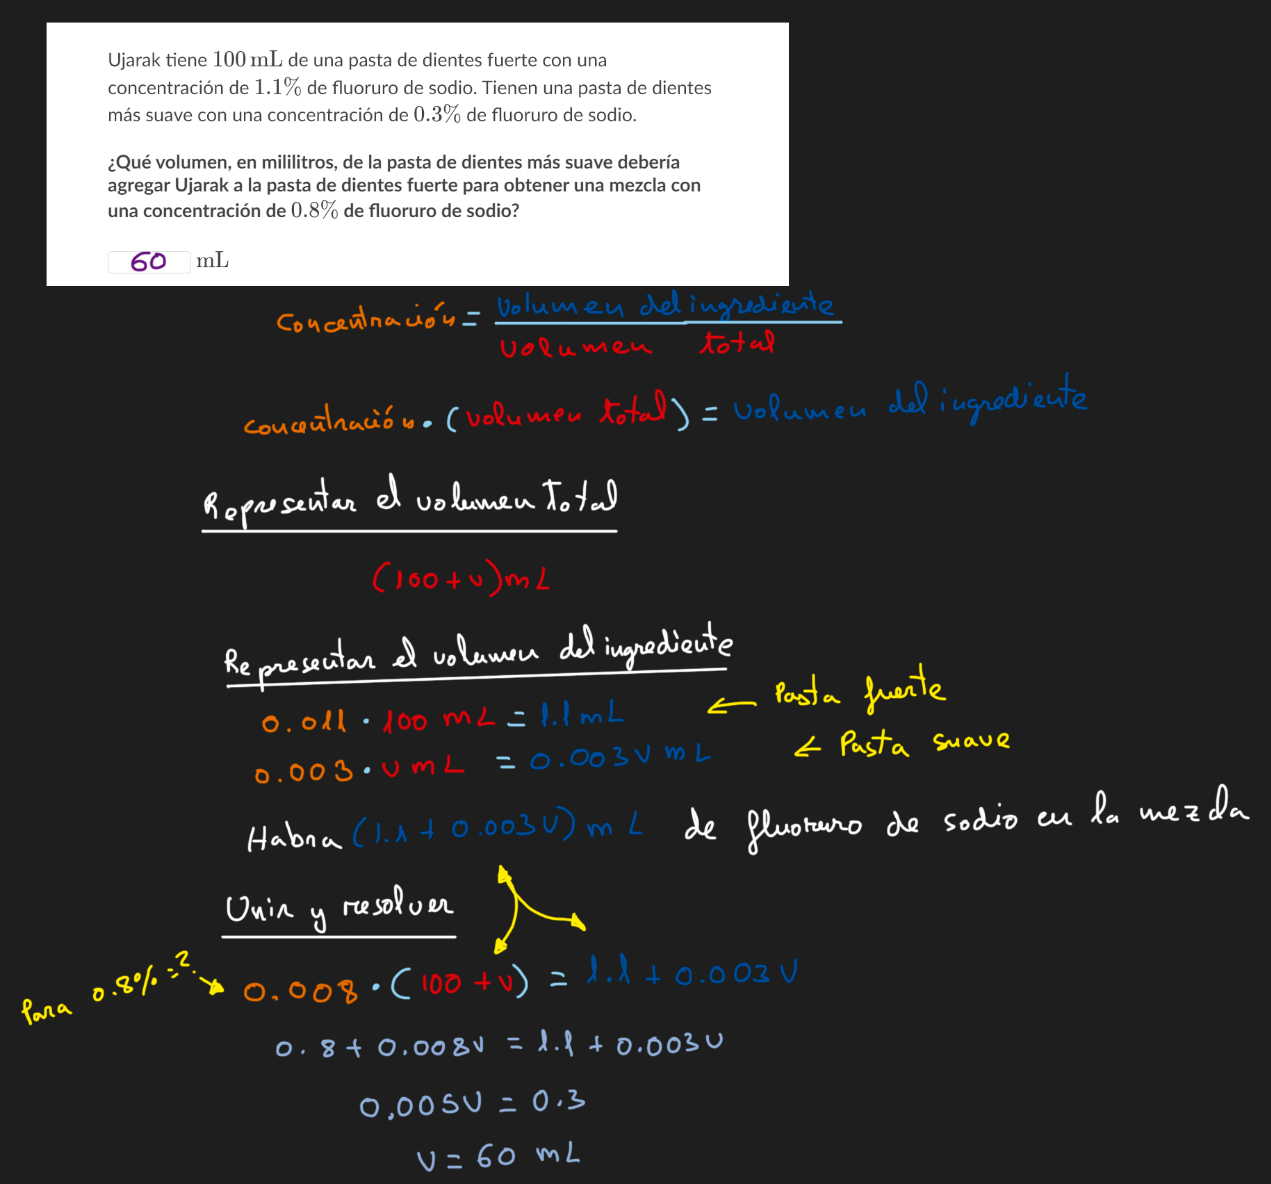 Ujarak tiene 100 mL de una pasta de dientes fuerte con una
concentración de 1.1% de fluoruro de sodio. Tienen una pasta de dientes
más suave con una concentración de 0.3% de fluoruro de sodio.
¿Qué volumen, en mililitros, de la pasta de dientes más suave debería
agregar Ujarak a la pasta de dientes fuerte para obtener una mezcla con
una concentración de 0.8% de fluoruro de sodio?
60 mL
Concentración = volumen del ingrediente
volumen total
concentración · (volumen total) = volumen del ingrediente
Representar el volumen Total
(100 + v) mL
Representar el volumen del ingrediente
0.011 · 100 mL = 1.1 mL ← Pasta fuerte
0.003 · v mL = 0.003 v mL ← Pasta suave
Habra (1.1 + 0.003 v) mL de fluoruro de sodio en la mezcla
Unir y resolver
Para 0.8% = ? → 0.008 · (100 + v) = 1.1 + 0.003 v
0.8 + 0.008v = 1.1 + 0.003v
0,005v = 0.3
v = 60 mL